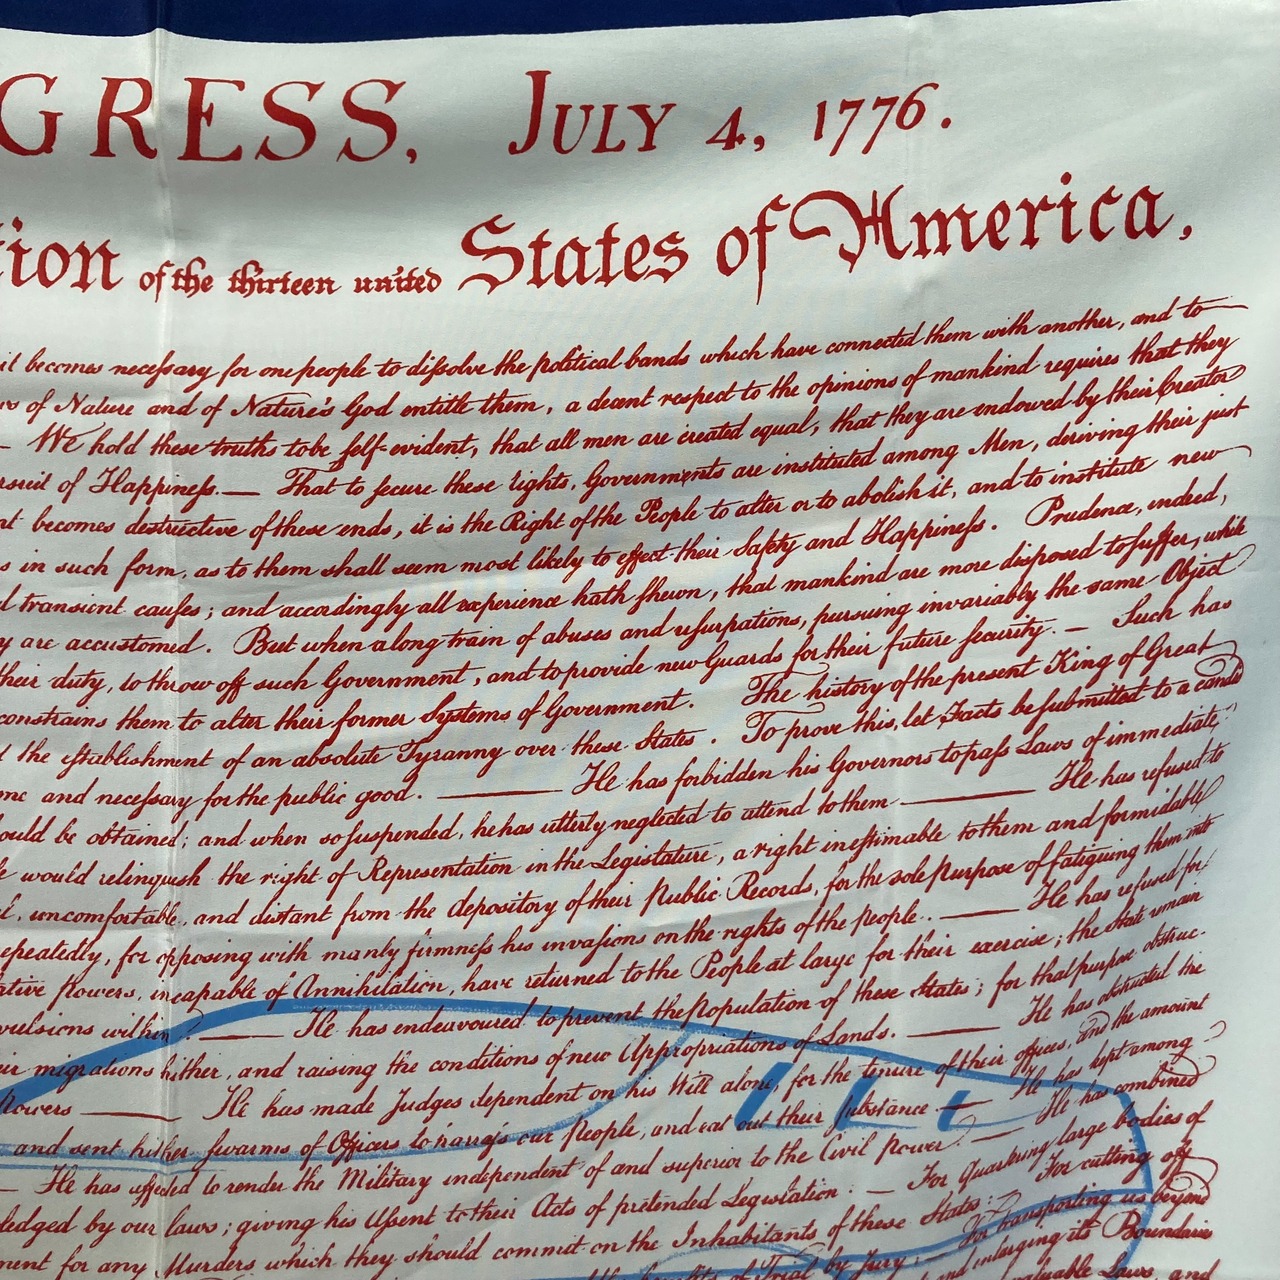 GRESS, JULY 4, 1776.
tion of the thirteen united States of America,
it becomes necessary for one people to dissolve the political bands which have connected them with another, and to
of Nature and of Nature's God entitle them, a decent respect to the opinions of mankind requires that they
— We hold these truths to be self-evident, that all men are created equal, that they are endowed by their Creator
rsuit of Happiness.— That to secure these rights, Governments are instituted among Men, deriving their just
nt becomes destructive of these ends, it is the Right of the People to alter or to abolish it, and to institute new
s in such form, as to them shall seem most likely to effect their Safety and Happiness. Prudence, indeed,
d transient causes; and accordingly all experience hath shewn, that mankind are more disposed to suffer, while
y are accustomed. But when a long train of abuses and usurpations, pursuing invariably the same Object
their duty, to throw off such Government, and to provide new Guards for their future security. — Such has
constrains them to alter their former Systems of Government. The history of the present King of Great
d the establishment of an absolute Tyranny over these States. To prove this, let Facts be submitted to a candid
me and necessary for the public good. — He has forbidden his Governors to pass Laws of immediate
ould be obtained; and when so suspended, he has utterly neglected to attend to them — He has refused to
e would relinquish the right of Representation in the Legislature, a right inestimable to them and formidable
l, uncomfortable, and distant from the depository of their Public Records, for the sole purpose of fatiguing them into
epeatedly, for opposing with manly firmness his invasions on the rights of the people. — He has refused for
ative Powers, incapable of Annihilation, have returned to the People at large for their exercise; the State remain
vulsions within. — He has endeavoured to prevent the Population of these States; for that purpose obstruc-
ir migrations hither, and raising the conditions of new Appropriations of Lands. — He has obstructed the
Powers — He has made Judges dependent on his Will alone, for the tenure of their offices, and the amount
and sent hither swarms of Officers to harrass our People, and eat out their substance — He has kept among
— He has affected to render the Military independent of and superior to the Civil power. — He has combined
ledged by our laws; giving his Assent to their Acts of pretended Legislation: — For Quartering large bodies of
ment for any Murders which they should commit on the Inhabitants of these States: — For cutting off
benefits of Trial by Jury: — For transporting us beyond
and enlarging its Boundaries
valuable Laws, and